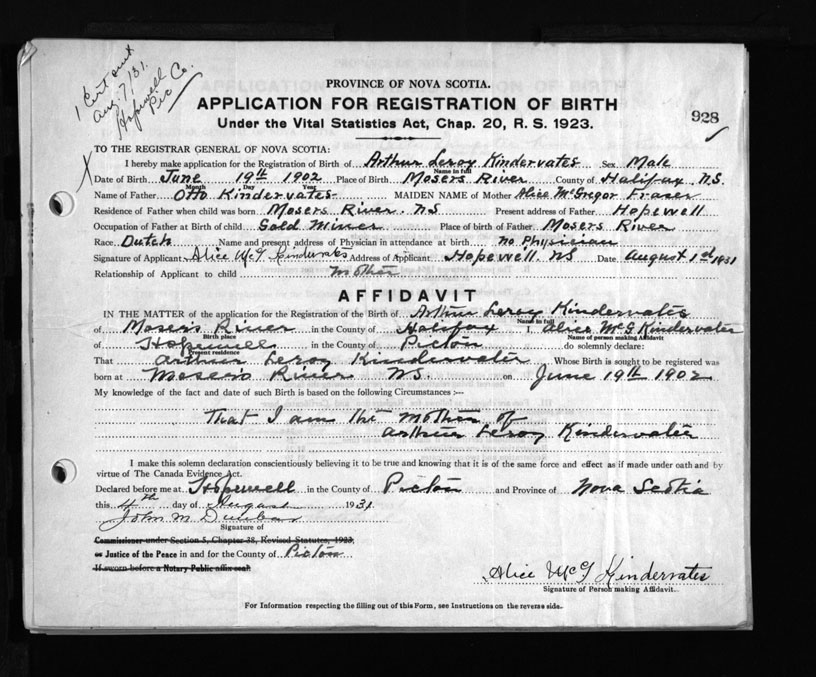 1 Cert out
Aug. 7/31.
Hopewell
Pic Co.
PROVINCE OF NOVA SCOTIA.
APPLICATION FOR REGISTRATION OF BIRTH
Under the Vital Statistics Act, Chap. 20, R. S. 1923.
928
TO THE REGISTRAR GENERAL OF NOVA SCOTIA:
I hereby make application for the Registration of Birth of Arthur Leroy Kindervater Sex Male
Name in full
Date of Birth June 19th 1902 Place of Birth Mosers River County of Halifax, N.S.
Month Day Year
Name of Father Otto Kindervater MAIDEN NAME of Mother Alice McGregor Fraser
Residence of Father when child was born Mosers River. NS Present address of Father Hopewell
Occupation of Father at Birth of child Gold Miner Place of birth of Father Mosers River
Race Dutch Name and present address of Physician in attendance at birth no Physician
Signature of Applicant Alice McG Kindervater Address of Applicant Hopewell NS Date August 1st 1931
Relationship of Applicant to child mother
AFFIDAVIT
IN THE MATTER of the application for the Registration of the Birth of Arthur Leroy Kindervater
Name in full
of Moser's River in the County of Halifax I, Alice McG Kindervater
Birth place Name of person making Affidavit
of Hopewell in the County of Pictou do solemnly declare:
Present residence
That Arthur Leroy Kindervater Whose Birth is sought to be registered was
born at Moser's River NS. on June 19th 1902
My knowledge of the fact and date of such Birth is based on the following Circumstances :—
That I am the mother of
Arthur Leroy Kindervater
I make this solemn declaration conscientiously believing it to be true and knowing that it is of the same force and effect as if made under oath and by
virtue of The Canada Evidence Act.
Declared before me at Hopewell in the County of Pictou and Province of Nova Scotia
this 4th day of August 1931
John M Dunbar
Signature of
Commissioner under Section 5, Chapter 38, Revised Statutes, 1923,
or Justice of the Peace in and for the County of Pictou
If sworn before a Notary Public affix seal
Alice McG Kindervater
Signature of Person making Affidavit.
For Information respecting the filling out of this Form, see Instructions on the reverse side.